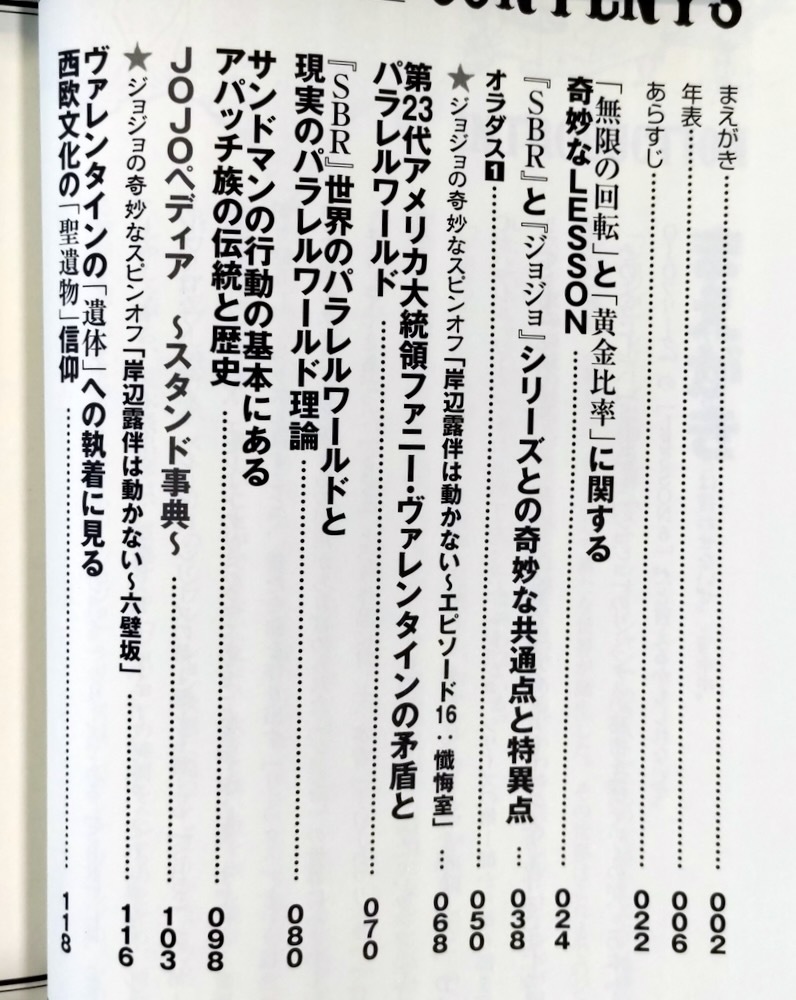 CONTENTS
まえがき……002
年表……006
あらすじ……022
「無限の回転」と「黄金比率」に関する
奇妙なLESSON……024
『SBR』と『ジョジョ』シリーズとの奇妙な共通点と特異点…038
オラダス1……050
★ジョジョの奇妙なスピンオフ「岸辺露伴は動かない～エピソード16：懺悔室」…068
第23代アメリカ大統領ファニー・ヴァレンタインの矛盾と
パラレルワールド……070
『SBR』世界のパラレルワールドと
現実のパラレルワールド理論……080
サンドマンの行動の基本にある
アパッチ族の伝統と歴史……098
JOJOペディア ～スタンド事典～……103
★ジョジョの奇妙なスピンオフ「岸辺露伴は動かない～六壁坂」……116
ヴァレンタインの「遺体」への執着に見る
西欧文化の「聖遺物」信仰……118